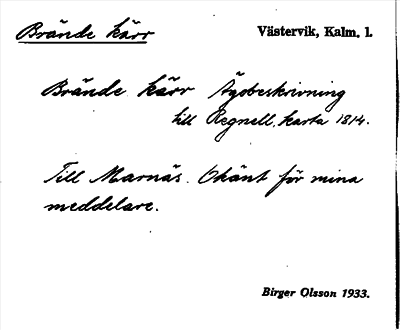 Brände kärr
Västervik, Kalm. l.
Brände kärr Ägobeskrivning
till Regnell, karta 1814.
Till Marnäs. Okänt för mina
meddelare.
Birger Olsson 1933.